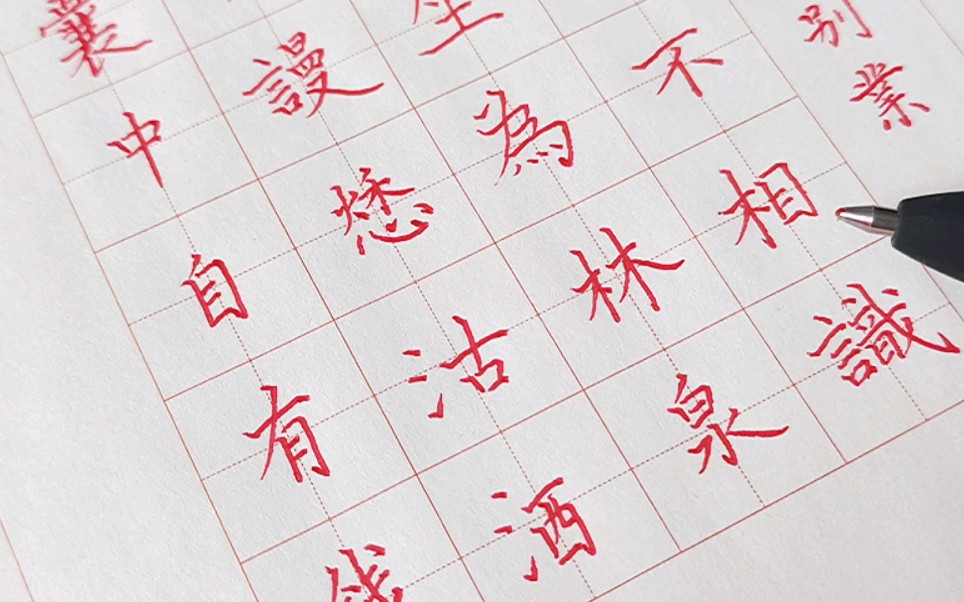 別業
不相識
坐為林泉
謾愁沽酒
囊中自有錢